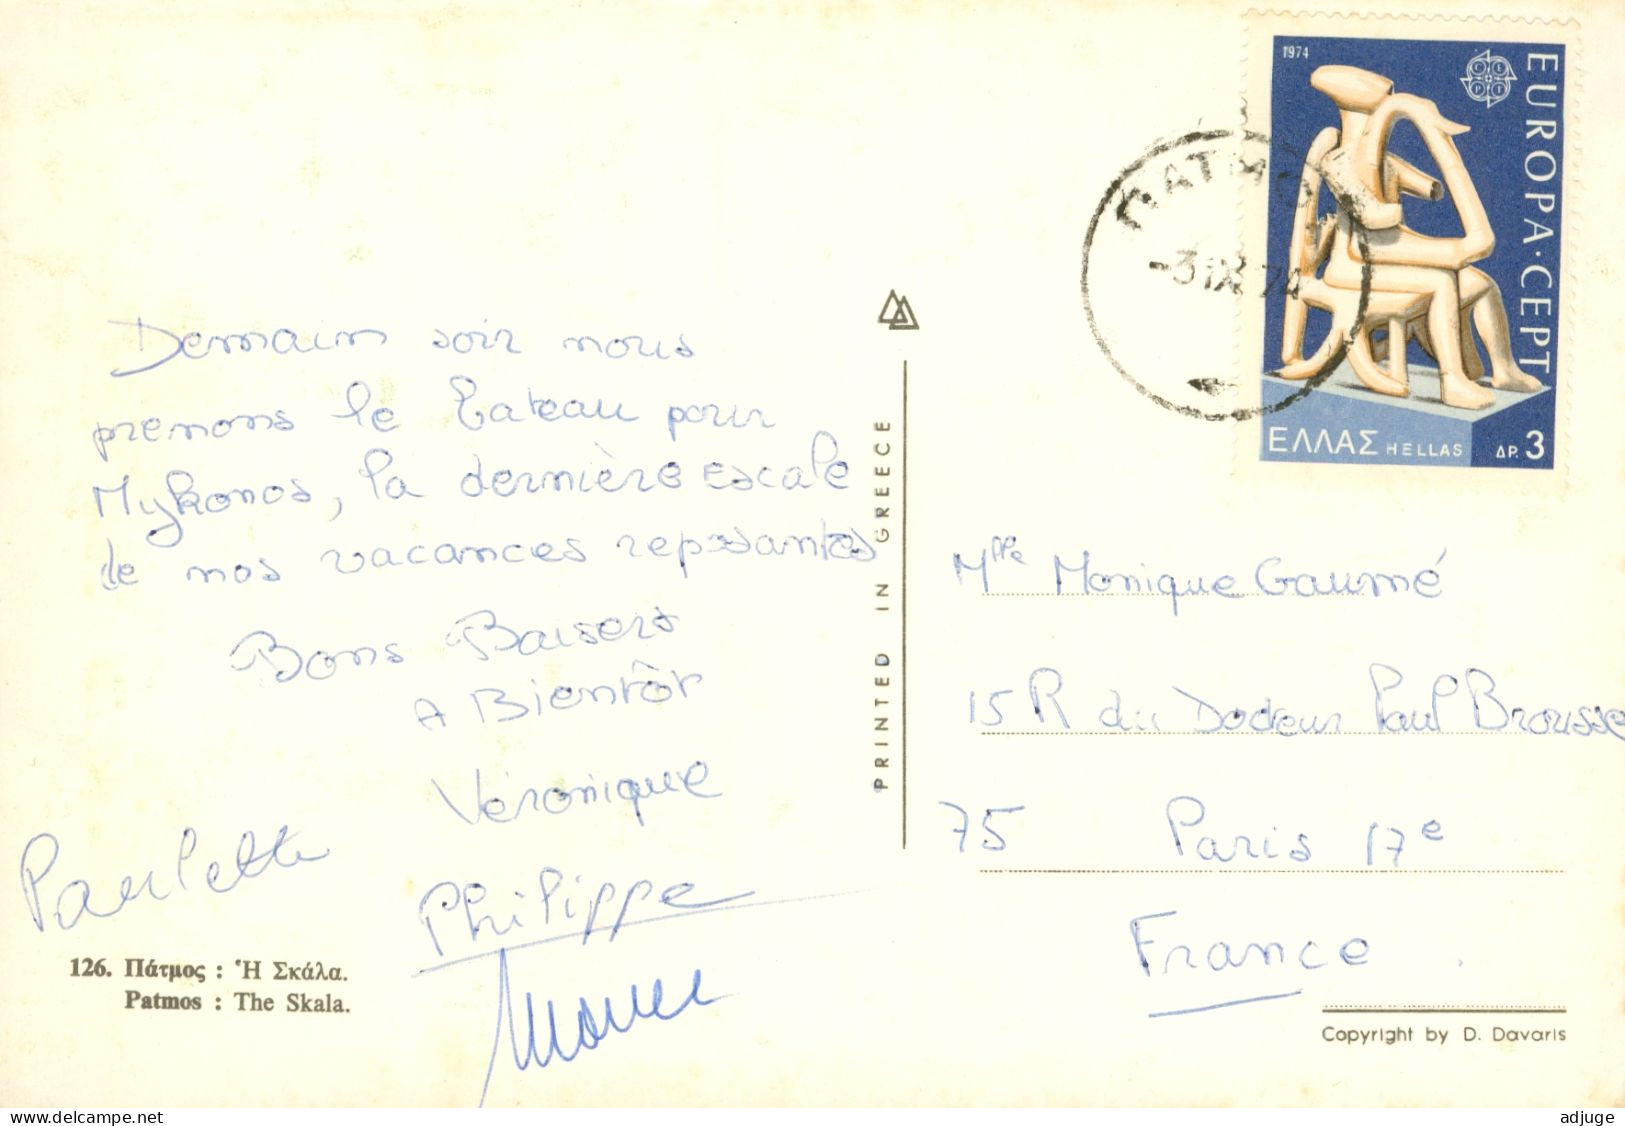 Demain soir nous
prenons le bateau pour
Mykonos, la dernière escale
de nos vacances reposantes
Bons Baisers
A Bientôt
Véronique
Paulette
Philippe
126. Πάτμος : Ἡ Σκάλα.
Patmos : The Skala.
PRINTED IN GREECE
1974
EUROPA·CEPT
ΕΛΛΑΣ HELLAS ΔΡ. 3
ΠΑΤΜΟΥ
-3 IX 74
Mlle Monique Gaumé
15 R du Docteur Paul Brousse
75 Paris 17e
France
Copyright by D. Davaris
www.delcampe.net
adjuge